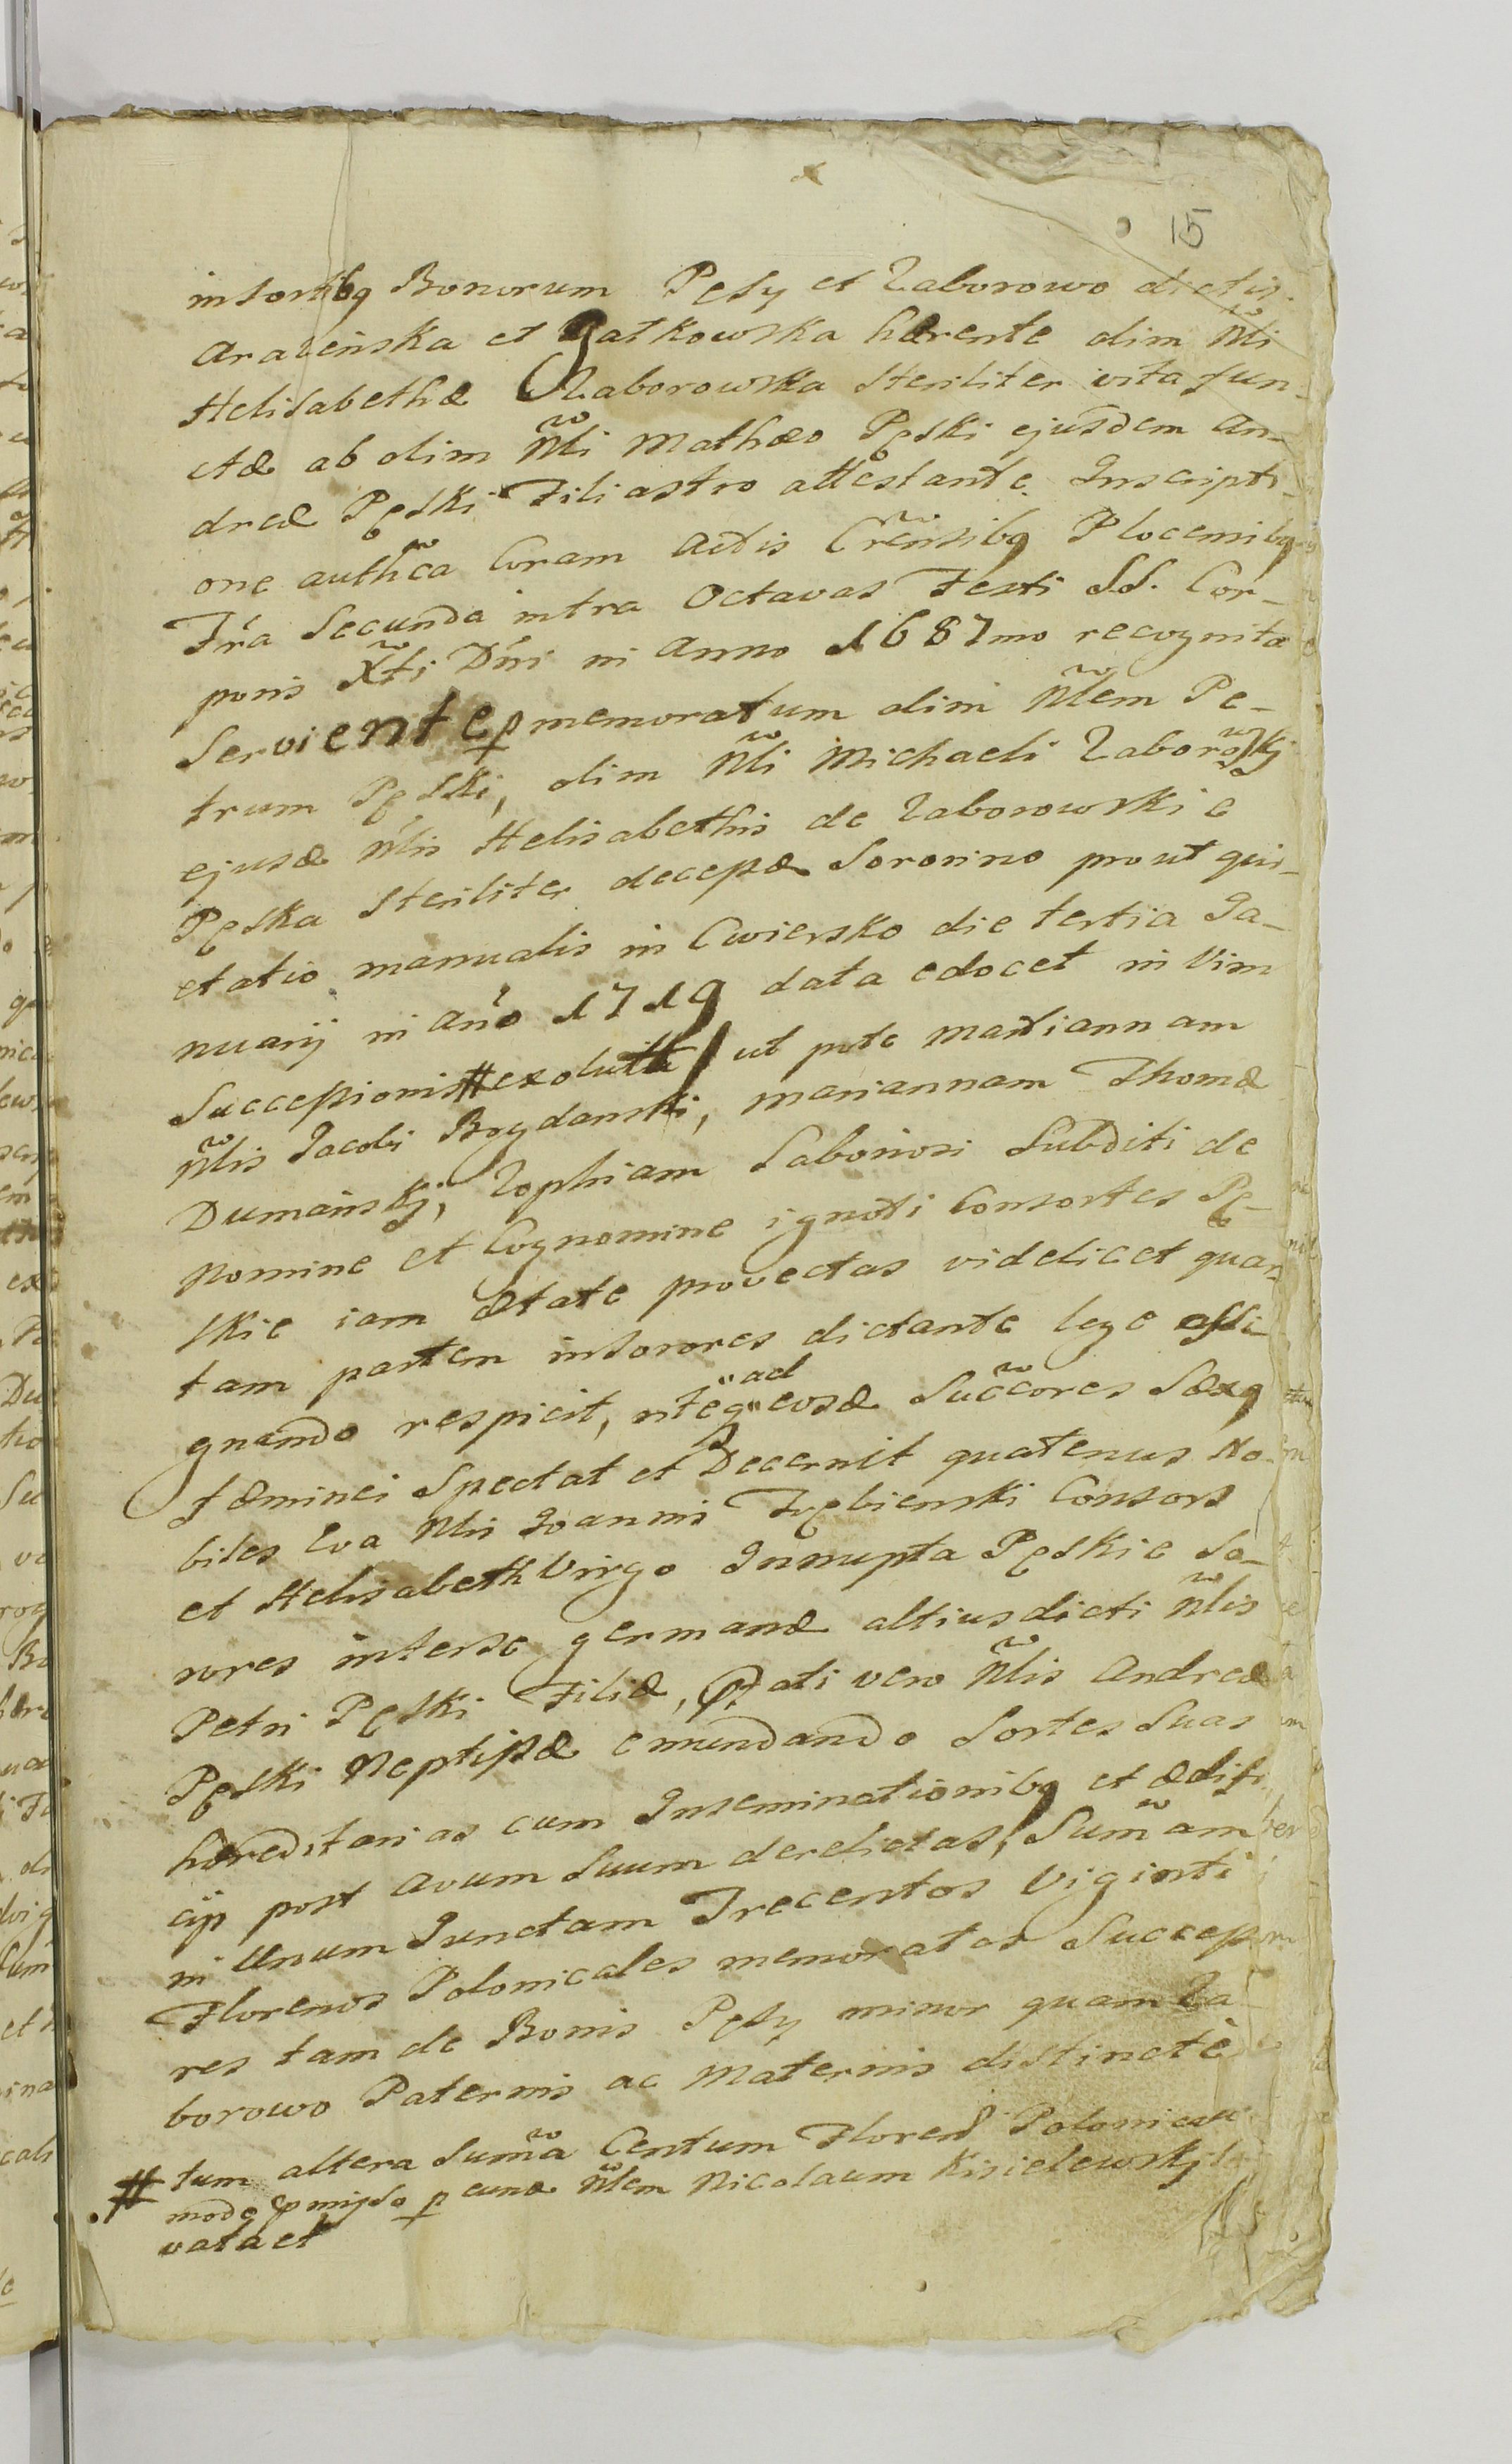 15
in sortibq Bonorum Pęsy et Zaborowo dictis
Arazeńska et Gatkowska hærente olim Nli
Helisabethæ Zaborowska steriliter vita fun-
ctæ ab olim Nli Mathæo Pęski ejusdem An-
dreæ Pęski Filiastro attestante Inscripti-
one authca Coram Actis Crensibq Plocensibq
Fra Secunda intra Octavas Festi SS. Cor-
poris Xti Dni in Anno 1687mo recognita
Serviente p memoratum olim Nlem Pe-
trum Pęski, olim Nli Michaeli Zaborowskj
ejusdæ Nlis Helisabethis de Zaborowskie
Pęska Steriliter decessæ Sororino prout qui-
etatio manualis in Cwiersko die tertia Ja-
nuarij in Ano 1719 data edocet in Vim
Successionis # exoluta ut pote Mariannam
Nlis Jacobi Bogdanski, Mariannam Thomæ
Dumainskj, Zophiam Laboriosi Subditi de
Nomine et Cognomine ignoti Consortes Pę-
skie iam ætate provectas videlicet quar-
tam partem in sorores dictante lege assi-
gnando respicit, nteq "ad" eosdæ Succores Sexq
fæminei Spectat et Decernit quatenus No-
biles Eva Nlis Joannis Trębienski Consors
et Helisabeth Virgo Innupta Pęskie So-
rores interse germanæ altius dicti Nlis
Petri Pęski Filiæ, pdati vero Nlis Andreæ
Pęski Neptissæ emundando Sortes Suas
hæreditarias cum Inseminationibq et ædifi-
cijs post Avum Suum derelictas, Sumam
in Unum Junctam Trecentos Viginti
Florenos Polonicales memoratos Success
res tam de Bonis Pęsy minor quam Za
borowo Paternis ac Maternis distinctè
# tum altera Suma Centum Floren Polonical
modo pmisso p eundæ Nlem Nicolaum Kisielewskj
vata et